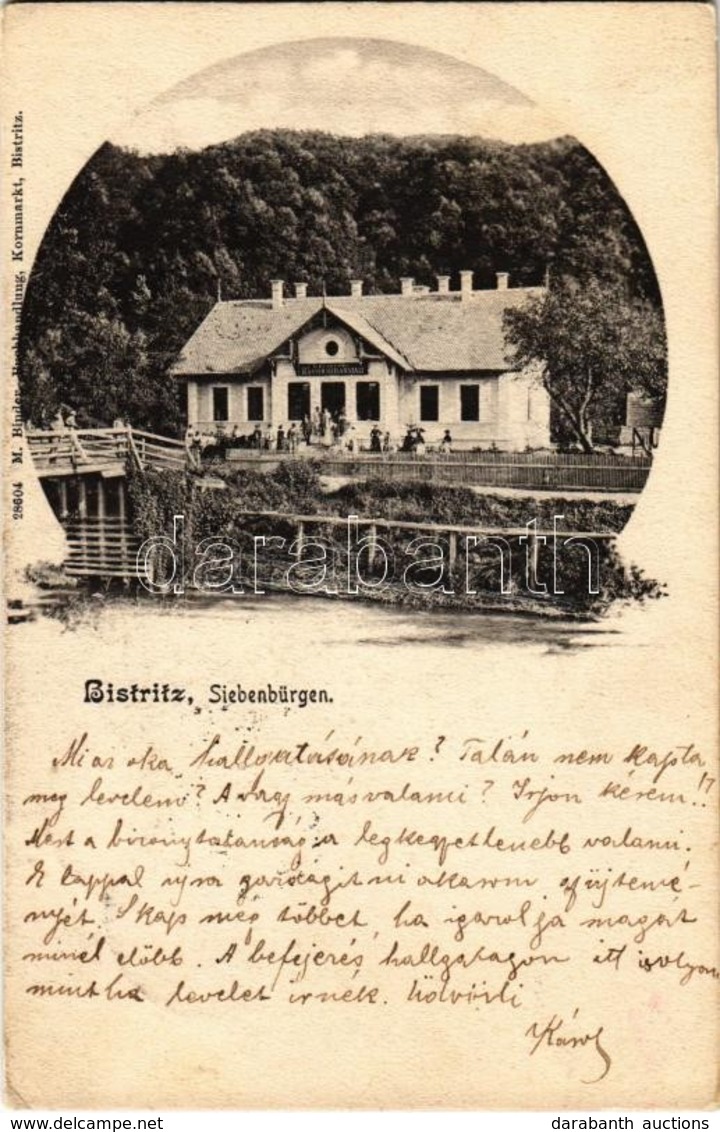 28604 M. Binder, Buchhandlung, Kornmarkt, Bistritz.
darabanth
Bistritz, Siebenbürgen.
Mi az oka hallgatásának? Talán nem kapta
meg levelem? Avagy más valami? Irjon kérem!!
Mert a bizonytalanság a legkegyetlenebb valami.
E lappal ujra gazdagitni akarom gyüjtemé-
nyét. Kap még többet, ha igazolja magát
minél előbb. A befejezés hallgatagon itt
mintha levelet irnék. Üdvözli
Károl
darabanth auctions